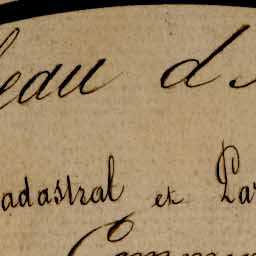 leau d'A
adastral et Par
Commun